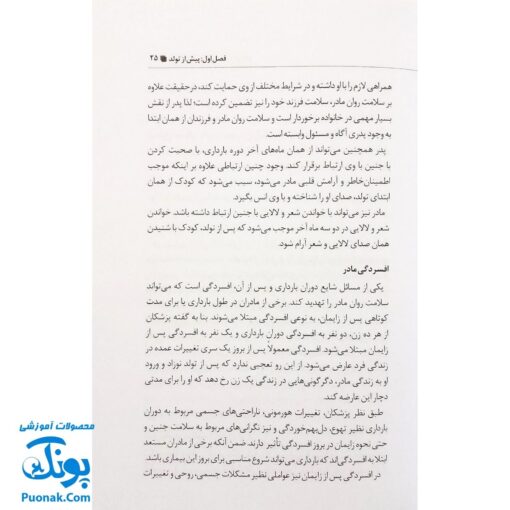 فصل اول: پیش از تولد ۲۵
همراهی لازم را با او داشته و در شرایط مختلف از وی حمایت کند، در حقیقت علاوه
بر سلامت روان مادر، سلامت فرزند خود را نیز تضمین کرده است؛ لذا پدر از نقش
بسیار مهمی در خانواده برخوردار است و سلامت روان مادر و فرزندان از همان ابتدا
به وجود پدری آگاه و مسئول وابسته است.
پدر همچنین می‌تواند از همان ماه‌های آخر دوره بارداری، با صحبت کردن
با جنین با وی ارتباط برقرار کند. وجود چنین ارتباطی علاوه بر اینکه موجب
اطمینان‌خاطر و آرامش قلبی مادر می‌شود، سبب می‌شود که کودک از همان
ابتدای تولد، صدای او را شناخته و با وی انس بگیرد.
مادر نیز می‌تواند با خواندن شعر و لالایی با جنین ارتباط داشته باشد. خواندن
شعر و لالایی در دو سه ماه آخر موجب می‌شود که پس از تولد، کودک با شنیدن
همان صدای لالایی و شعر آرام شود.
افسردگی مادر
یکی از مسائل شایع دوران بارداری و پس از آن، افسردگی است که می‌تواند
سلامت روان مادر را تهدید کند. برخی از مادران در طول بارداری یا برای مدت
کوتاهی پس از زایمان، به نوعی افسردگی مبتلا می‌شوند. بنا به گفته پزشکان
از هر ده زن، دو نفر به افسردگی دوران بارداری و یک نفر به افسردگی پس از
زایمان مبتلا می‌شود. افسردگی معمولاً پس از بروز یک سری تغییرات عمده در
زندگی فرد عارض می‌شود. از این رو تعجبی ندارد که پس از تولد نوزاد و ورود
او به زندگی مادر، دگرگونی‌هایی در زندگی یک زن رخ دهد که او را برای مدتی
دچار این عارضه کند.
طبق نظر پزشکان، تغییرات هورمونی، ناراحتی‌های جسمی مربوط به دوران
بارداری نظیر تهوع، دل‌به‌هم‌خوردگی و نیز نگرانی‌های مربوط به سلامت جنین و
حتی نحوه زایمان در بروز افسردگی تأثیر دارند. ضمن آنکه برخی از مادران مستعد
ابتلا به افسردگی‌اند که بارداری می‌تواند شروع مناسبی برای بروز این بیماری باشد.
در افسردگی پس از زایمان نیز عواملی نظیر مشکلات جسمی، روحی و تغییرات
محصولات آموزشی
پونک
Puonak.Com